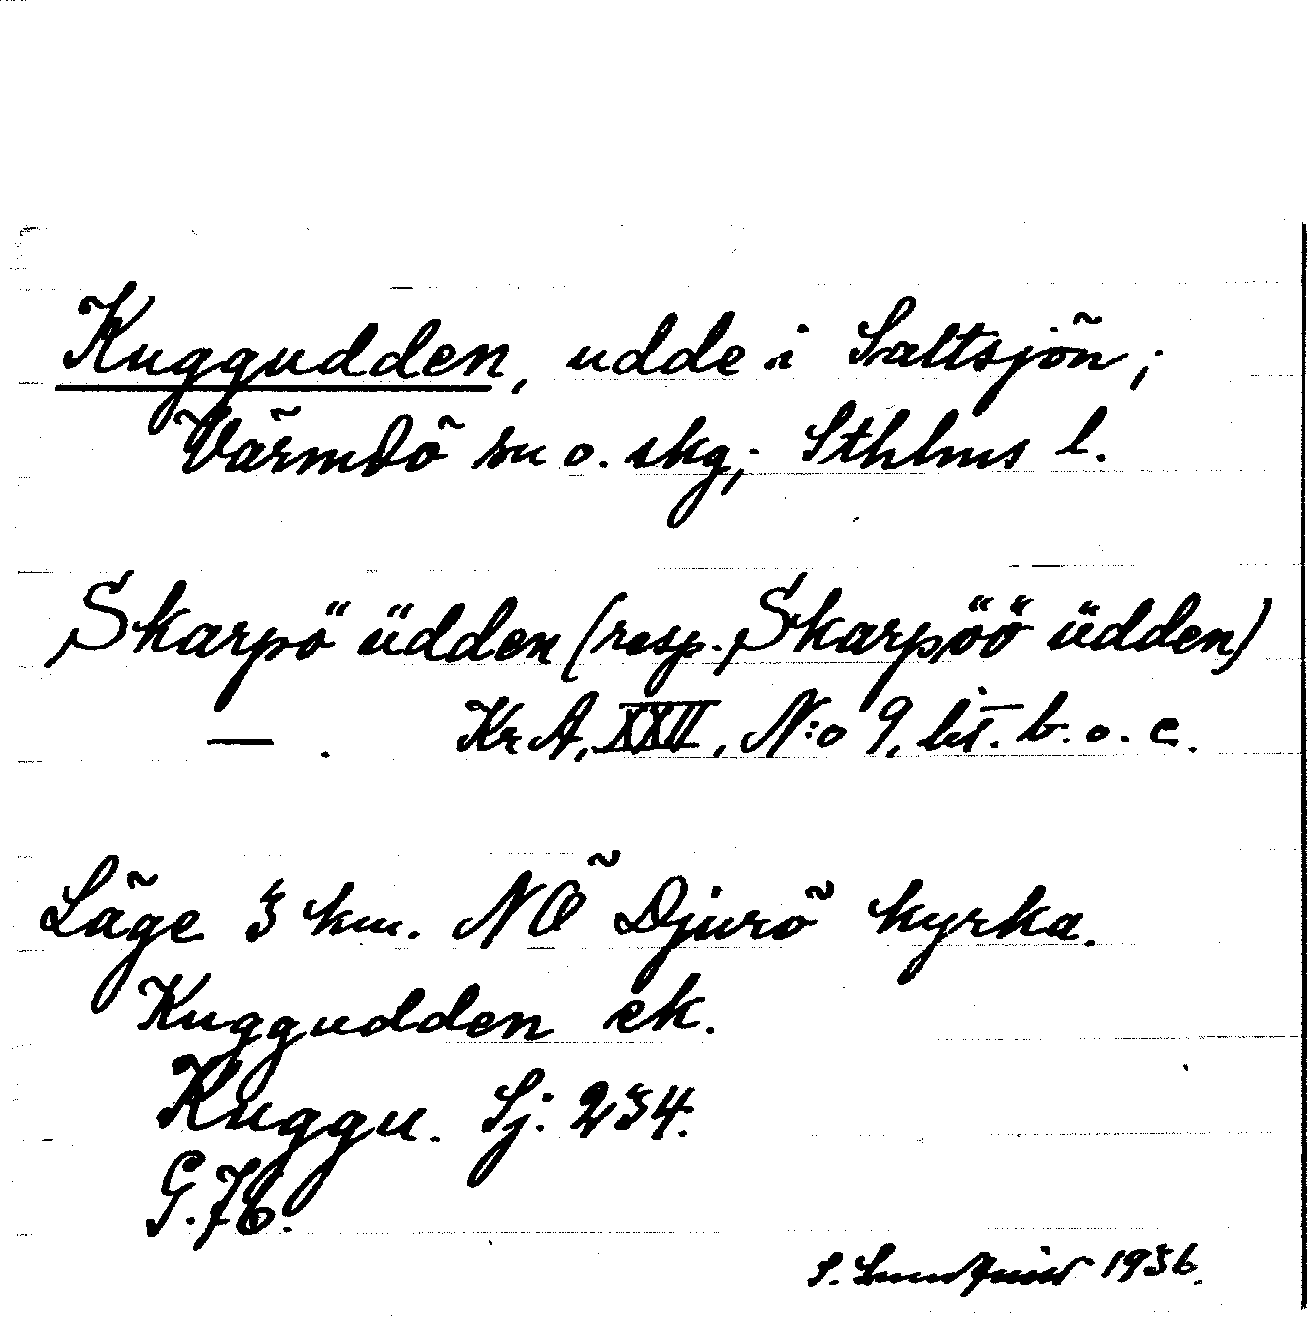 Kuggudden, udde i Saltsjön;
Värmdö sn o. skg; Sthlms l.
Skarpö üdden (resp. Skarpöö üdden)
— . Kr A, XXII, N:o 9, lit. b. o. c.
Läge 3 km. NÖ Djurö kyrka.
Kuggudden ek.
Kuggu. Sj: 234.
G.
S. 1936.